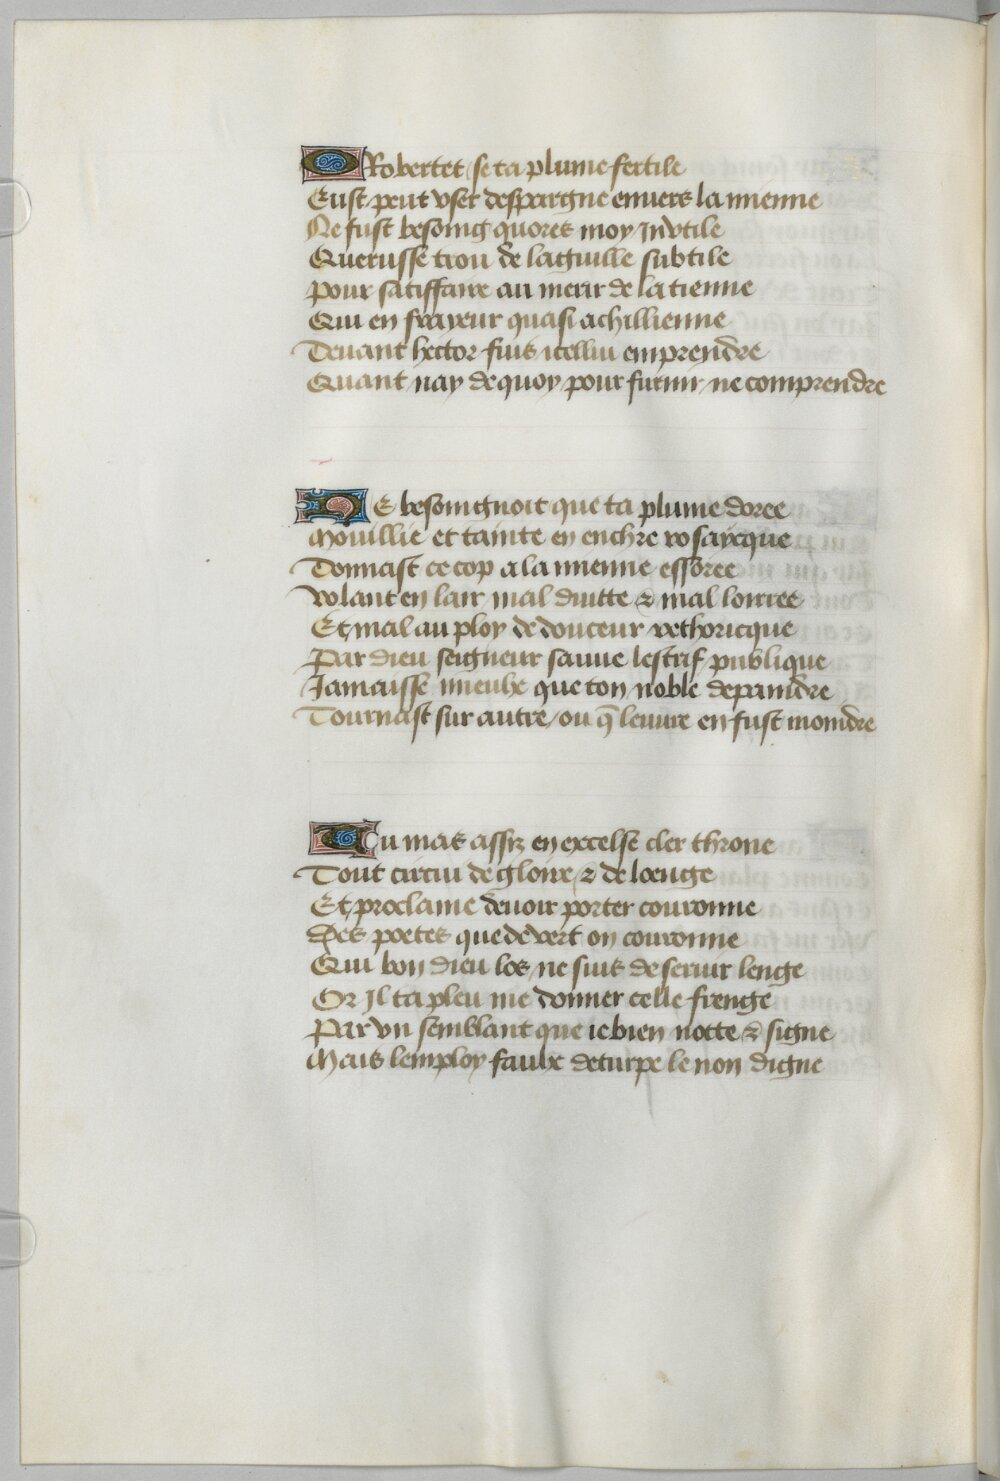 O Robertet se ta plume fertile
Eust peut vser despargne enuers la mienne
Ne fust besoing quores moy Jnvtile
Querusse trou de laguille subtile
Pour satiffaire au merir de la tienne
Qui en frayeur quasi achillienne
Deuant hector fuis icellui emprendre
Quant nay de quoy pour furnir ne comprendre
NE besoingnoit que ta plume doree
Moullie et tainte en enchre rosaycque
Donnast ce cop a la mienne essoree
Volant en lair mal duitte & mal loirree
Et mal au ploy de douceur rethoricque
Par dieu seigneur sauue lestrif publique
Jamaisse mieulx que ton noble depaindre
Tournast sur autre ou q̄ leuure en fust moindre
Tu mas assiz en excelse cler throne
Tout circui de gloire & de loenge
Et proclame deuoir porter couronne
Des poetes que de vert on couronne
Qui bon dieu los ne suis deseruir lenge
Or Jl ta pleu me donner celle frenge
Par vn semblant que ie bien notte & signe
Mais lemploy faulx deturpe le non digne